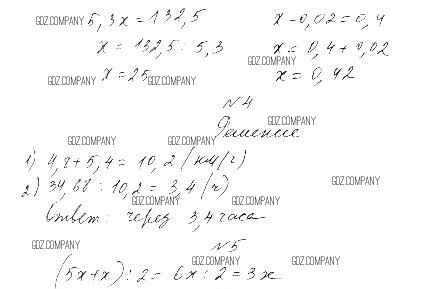 5,3x = 132,5
x = 132,5 : 5,3
x = 25
x - 0,02 = 0,4
x = 0,4 + 0,02
x = 0,42
N4
Решение
1) 4,8 + 5,4 = 10,2 (км/ч)
2) 34,68 : 10,2 = 3,4 (ч)
Ответ: через 3,4 часа
N5
(5x+x) : 2 = 6x : 2 = 3x
GDZ.COMPANY
GDZ.COMPANY
GDZ.COMPANY
GDZ.COMPANY
GDZ.COMPANY
GDZ.COMPANY
GDZ.COMPANY
GDZ.COMPANY
GDZ.COMPANY
GDZ.COMPANY
GDZ.COMPANY
GDZ.COMPANY
GDZ.COMPANY